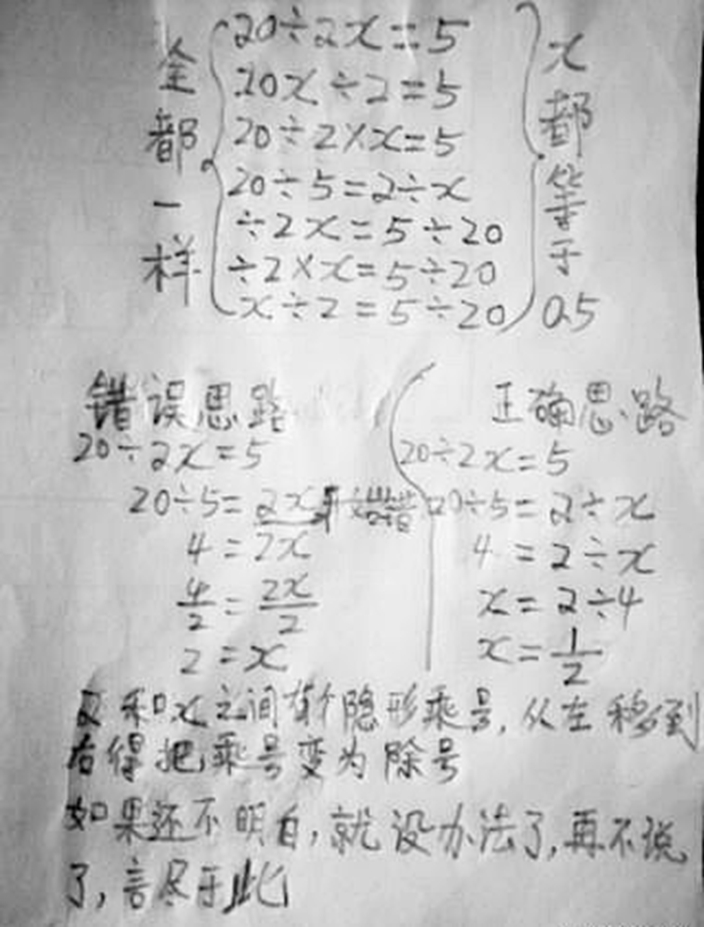 全都一样
20÷2x=5
20x÷2=5
20÷2×x=5
20÷5=2÷x
÷2x=5÷20
÷2×x=5÷20
x÷2=5÷20
x都等于0.5
错误思路
20÷2x=5
20÷5=2x开始错
4=2x
4/2=2x/2
2=x
正确思路
20÷2x=5
20÷5=2÷x
4=2÷x
x=2÷4
x=1/2
2和x之间有个隐形乘号,从左移到
右得把乘号变为除号
如果还不明白,就没办法了,再不说
了,言尽于此